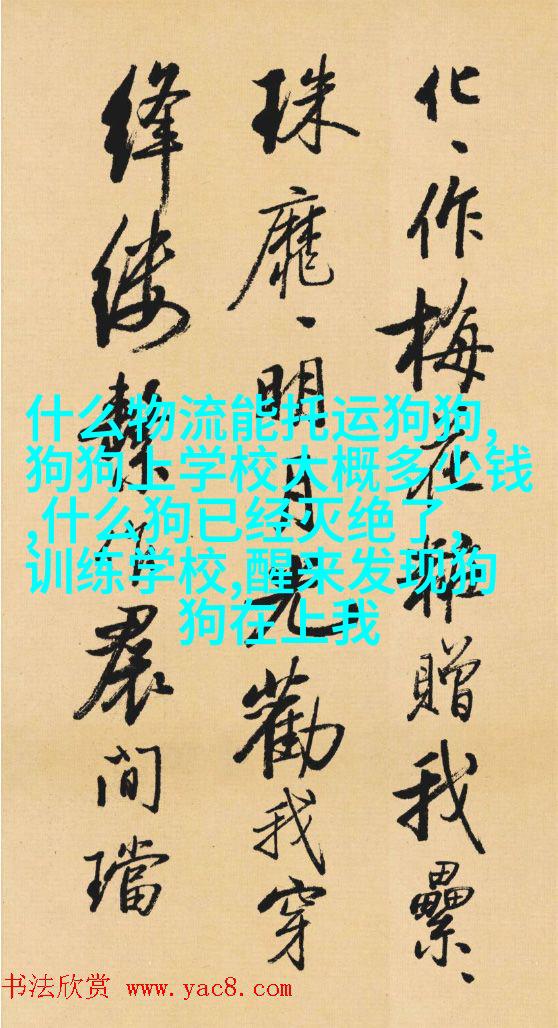 化、作梅花枢贈我纍、
珠龐、明月光勸我穿
绛缕繫作裙间璫
什么物流能托运狗狗,
狗狗上学校大概多少钱
,什么狗已经灭绝了,
训练学校,醒来发现狗
狗在上我
书法欣赏 www.yac8.com